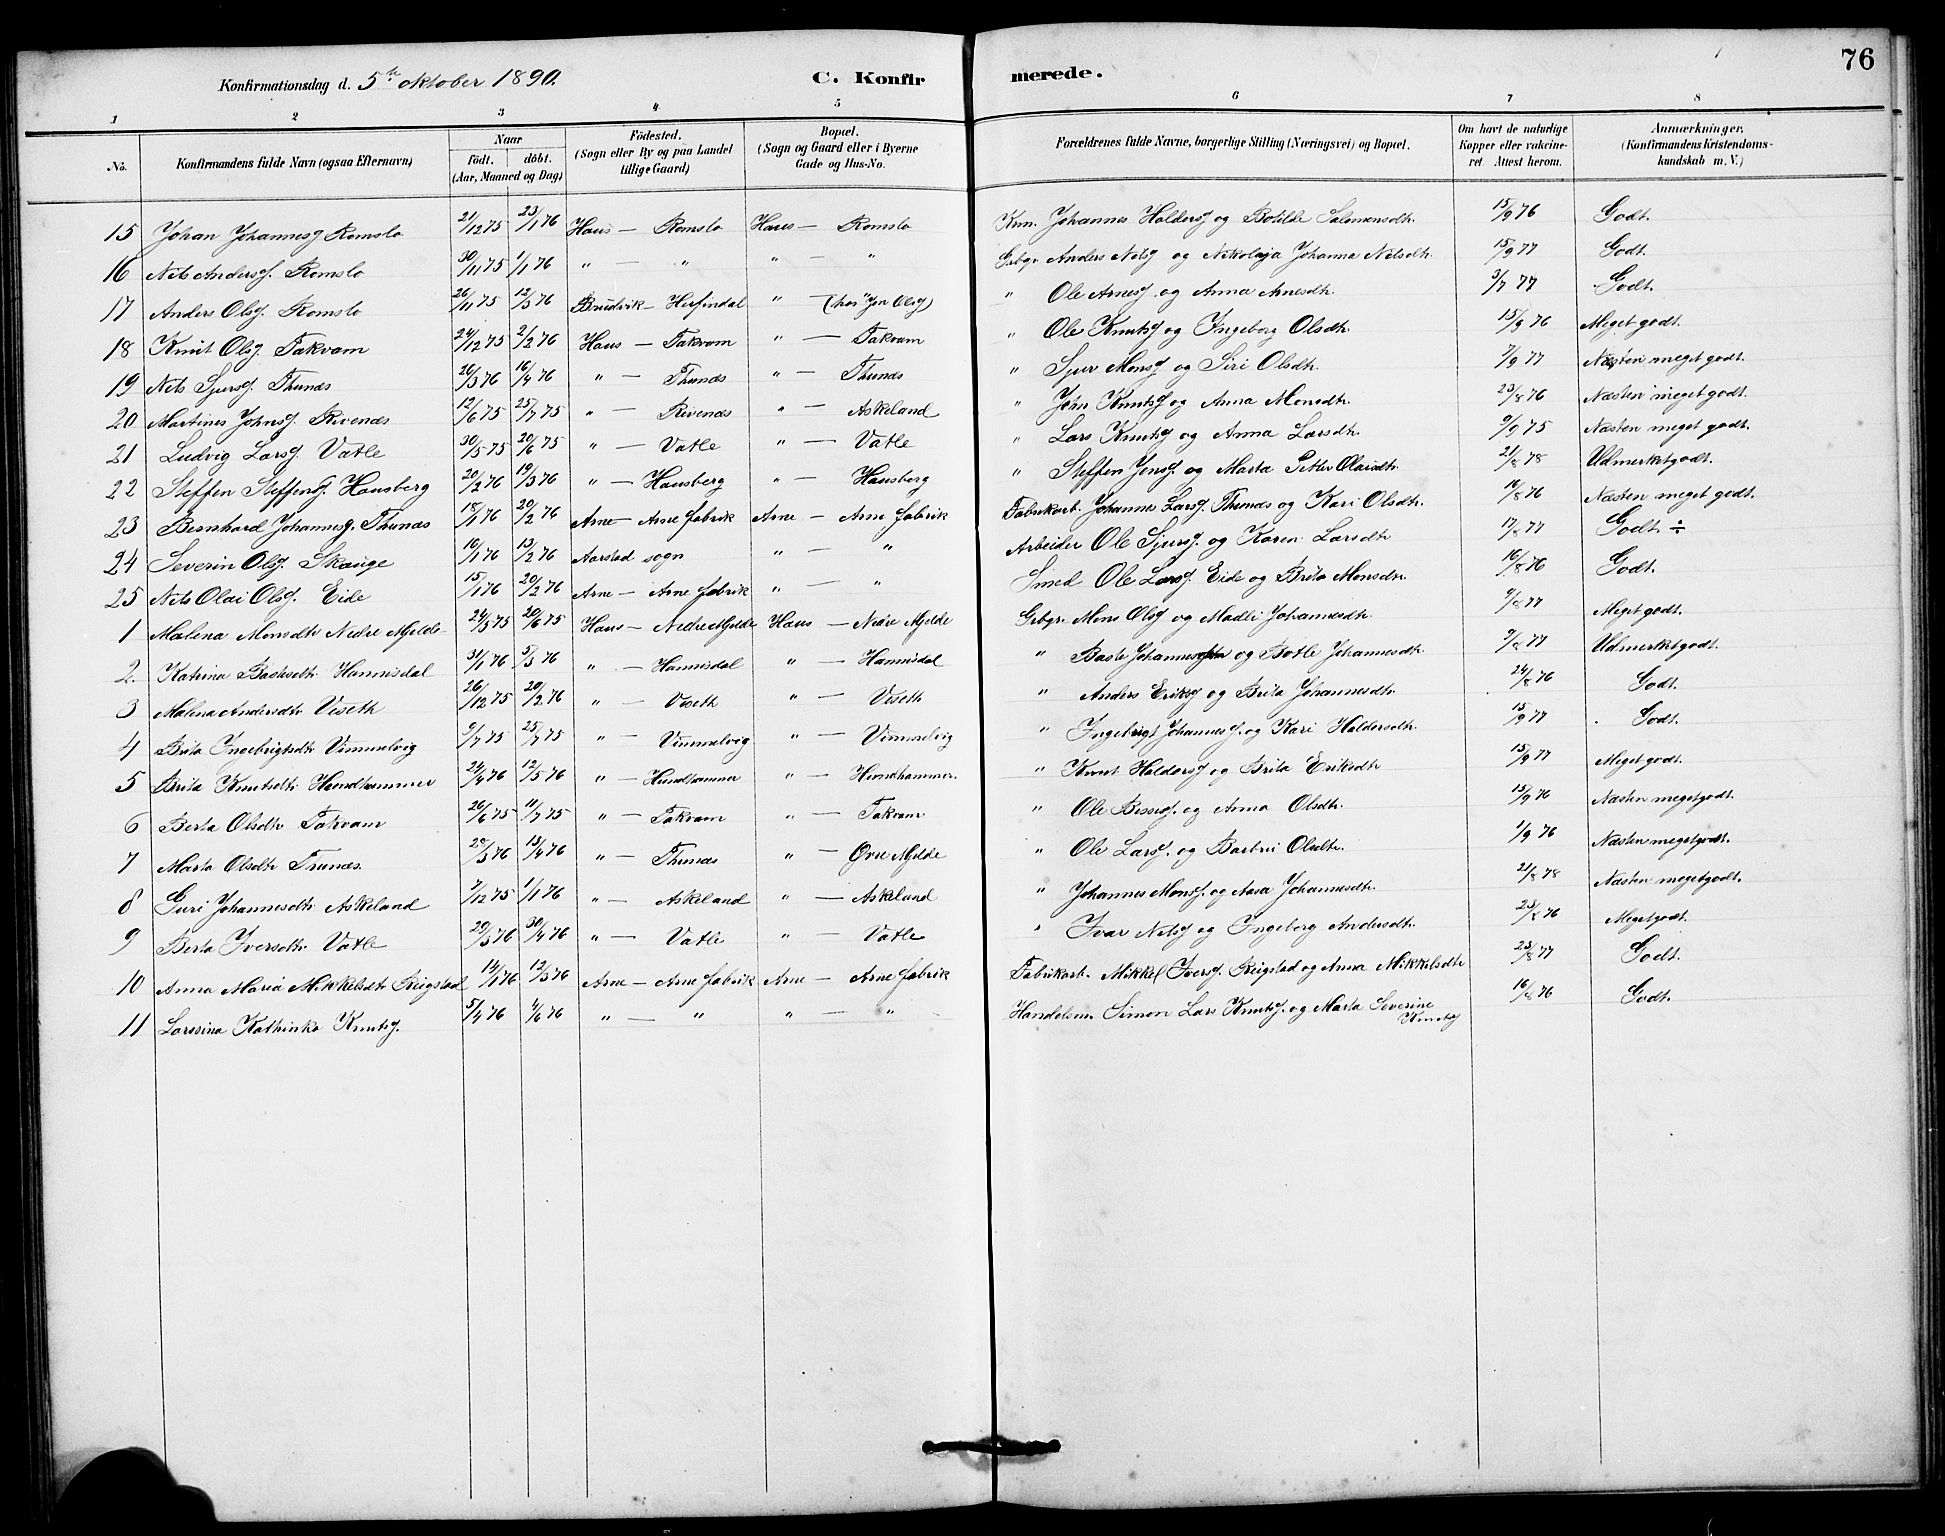 76
Konfirmationsdag d. 5te oktober 1890. C. Konfir merede.
1 2 3 4 5 6 7 8
No. Konfirmandens fulde Navn (ogsaa Efternavn) Naar Födt. döbt. (Aar, Maaned og Dag) Födested. (Sogn eller By og paa Landet tillige Gaard) Bopæl. (Sogn og Gaard eller i Byerne Gade og Hus-No. Forældrenes fulde Navne, borgerlige Stilling (Næringsvei) og Bopæl. Om havt de naturlige Kopper eller vakcineret. Attest herom. Anmærkninger. (Konfirmandens Kristendomskundskab m. V.)
15 Johan Johannesf Romslo 21/12 75 23/1 76 Haus — Romslo Haus — Romslo Johannes Haldersf og Botilde Salomonsdtr. 15/9 76 Godt.
16 Nils Andersf. Romslo 30/11 75 1/1 76 " — " " — " Grbgr Anders Nilsf og Nikolaja Johanna Nilsdtr. 15/9 77 Godt.
17 Anders Olsf. Romslo 26/11 75 12/3 76 Brudvik — Herfindal " — (hos Olsf) " Ole Arnesf. og Anna Arnesdtr. 3/7 77 Godt.
18 Knut Olsf. Takvam 24/12 75 2/2 76 Haus — Takvam " — Takvam " Ole Knutsf og Ingeborg Olsdtr. 15/9 76 Meget godt.
19 Nils Sjursf. Thunæs 26/3 76 16/4 76 " — Thunæs " — Thunæs " Sjur Monsf og Siri Olsdtr. 7/9 77 Næsten meget godt.
20 Martines Johnsf. Rivenæs 12/6 75 25/7 75 " — Rivenæs " — Askeland " John Knutsf og Anna Monsdtr. 23/8 76 Næsten meget godt.
21 Ludvig Larsf. Vatle 30/5 75 20/6 75 " — Vatle " — Vatle " Lars Knutsf og Anna Larsdtr. 9/9 75 Næsten meget godt.
22 Steffen Steffensf. Hausberg 20/2 76 19/3 76 " — Hausberg " — Hausberg " Steffen Jensf og Marta Petter Olaidtr. 21/8 78 Udmerket godt.
23 Bernhard Johannesf. Thunæs 18/1 76 20/2 76 Arne — Arne fabrik Arne — Arne fabrik Fabrikarb. Johannes Larsf. Thunæs og Kari Olsdtr. 16/8 76 Næsten meget godt.
24 Severin Olsf. Skauge 16/1 76 13/2 76 Aarstad sogn " — " Arbeider Ole Sjursf. og Karen Larsdtr 17/8 77 Godt ÷
25 Nils Olai Olsf. Eide 15/1 76 20/2 76 Arne — Arne fabrik " — " Smed Ole Larsf. Eide og Brita Monsdtr. 16/8 76 Godt.
1 Malena Monsdtr Nedre Mjelde 24/5 75 20/6 75 Haus — Nedre Mjelde Haus — Nedre Mjelde Grbgr. Mons Olsf og Madli Johannesdtr. 9/8 77 Meget godt.
2 Katrina Bastesdtr. Hannisdal 31/1 76 5/3 76 " — Hannisdal " — Hannisdal " Baste Johannes og Botle Johannesdtr. 9/8 77 Udmerket godt.
3 Malena Andersdtr Viseth 26/12 75 20/2 76 " — Viseth " — Viseth " Anders Eriksf og Brita Johannesdtr. 24/8 76 Godt.
4 Brita Ingebrigtsdtr Vimmelvig 9/7 75 25/7 75 " — Vimmelvig " — Vimmelvig " Ingebrigt Johannesf. og Kari Haldersdtr. 15/9 77 Godt.
5 Brita Knutsdtr. Hundhammer 24/4 76 12/5 76 " — Hundhammer " — Hundhammer. " Knut Haldorsf og Brita Eriksdtr 15/9 77 Meget godt.
6 Berta Olsdtr Takvam 26/6 75 11/7 75 " — Takvam " — Takvam " Ole og Anna Olsdtr. 15/9 76 Næsten meget godt.
7 Marta Olsdtr Tunæs. 29/3 76 13/4 76 " — Thunæs " — Øvre Mjelde " Ole Larsf. og Barbru Olsdtr. 1/9 76 Næsten meget godt.
8 Guri Johannesdtr. Askeland 7/12 75 1/1 76 " — Askeland " — Askeland " Johannes Monsf. og Aasa Johannesdtr. 21/8 78 Næsten meget godt.
9 Berta Iversdtr. Vatle 29/3 76 30/4 76 " — Vatle " — Vatle " Ivar Nilsf og Ingeborg Andersdtr. 23/8 76 Meget godt.
10 Anna Maria Mikkelsdtr Reigstad 14/1 76 12/3 76 Arne — Arne fabrik Arne — Arne fabrik Fabrikarb. Mikkel Iversf. Reigstad og Anna Mikkelsdtr 23/8 77 Godt.
11 Larssina Kathinka Knutsf. 5/4 76 4/6 76 " — " " — " Handelsm. Simon Lars Knutsf. og Marta Severine Knutsf 16/8 76 Godt.